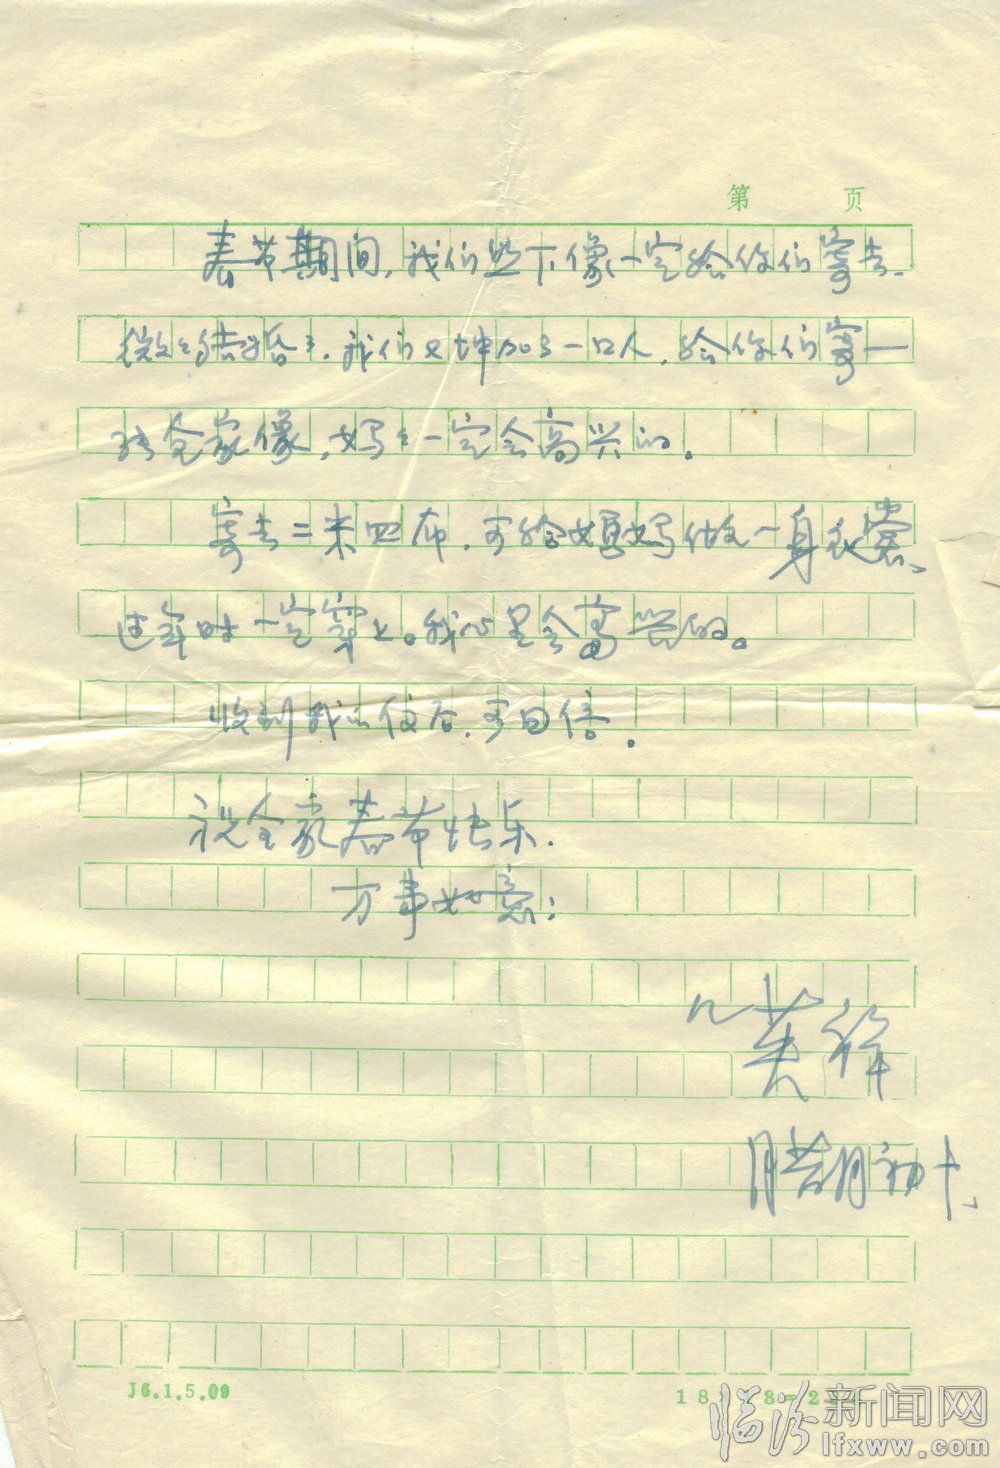 第 页
春节期间,我们照下像一定给你们寄去.
微微结婚了.我们又增加了一口人.给你们寄一
张全家像,妈妈一定会高兴的。
寄去二米四布.可给妈妈做一身衣裳、
过年时一定穿上。我心里会高兴的。
收到我的信后.可回信.
祝全家春节快乐.
万事如意:
儿英祥
腊月初十、
J6.1.5.09
临汾新闻网
lfxww.com